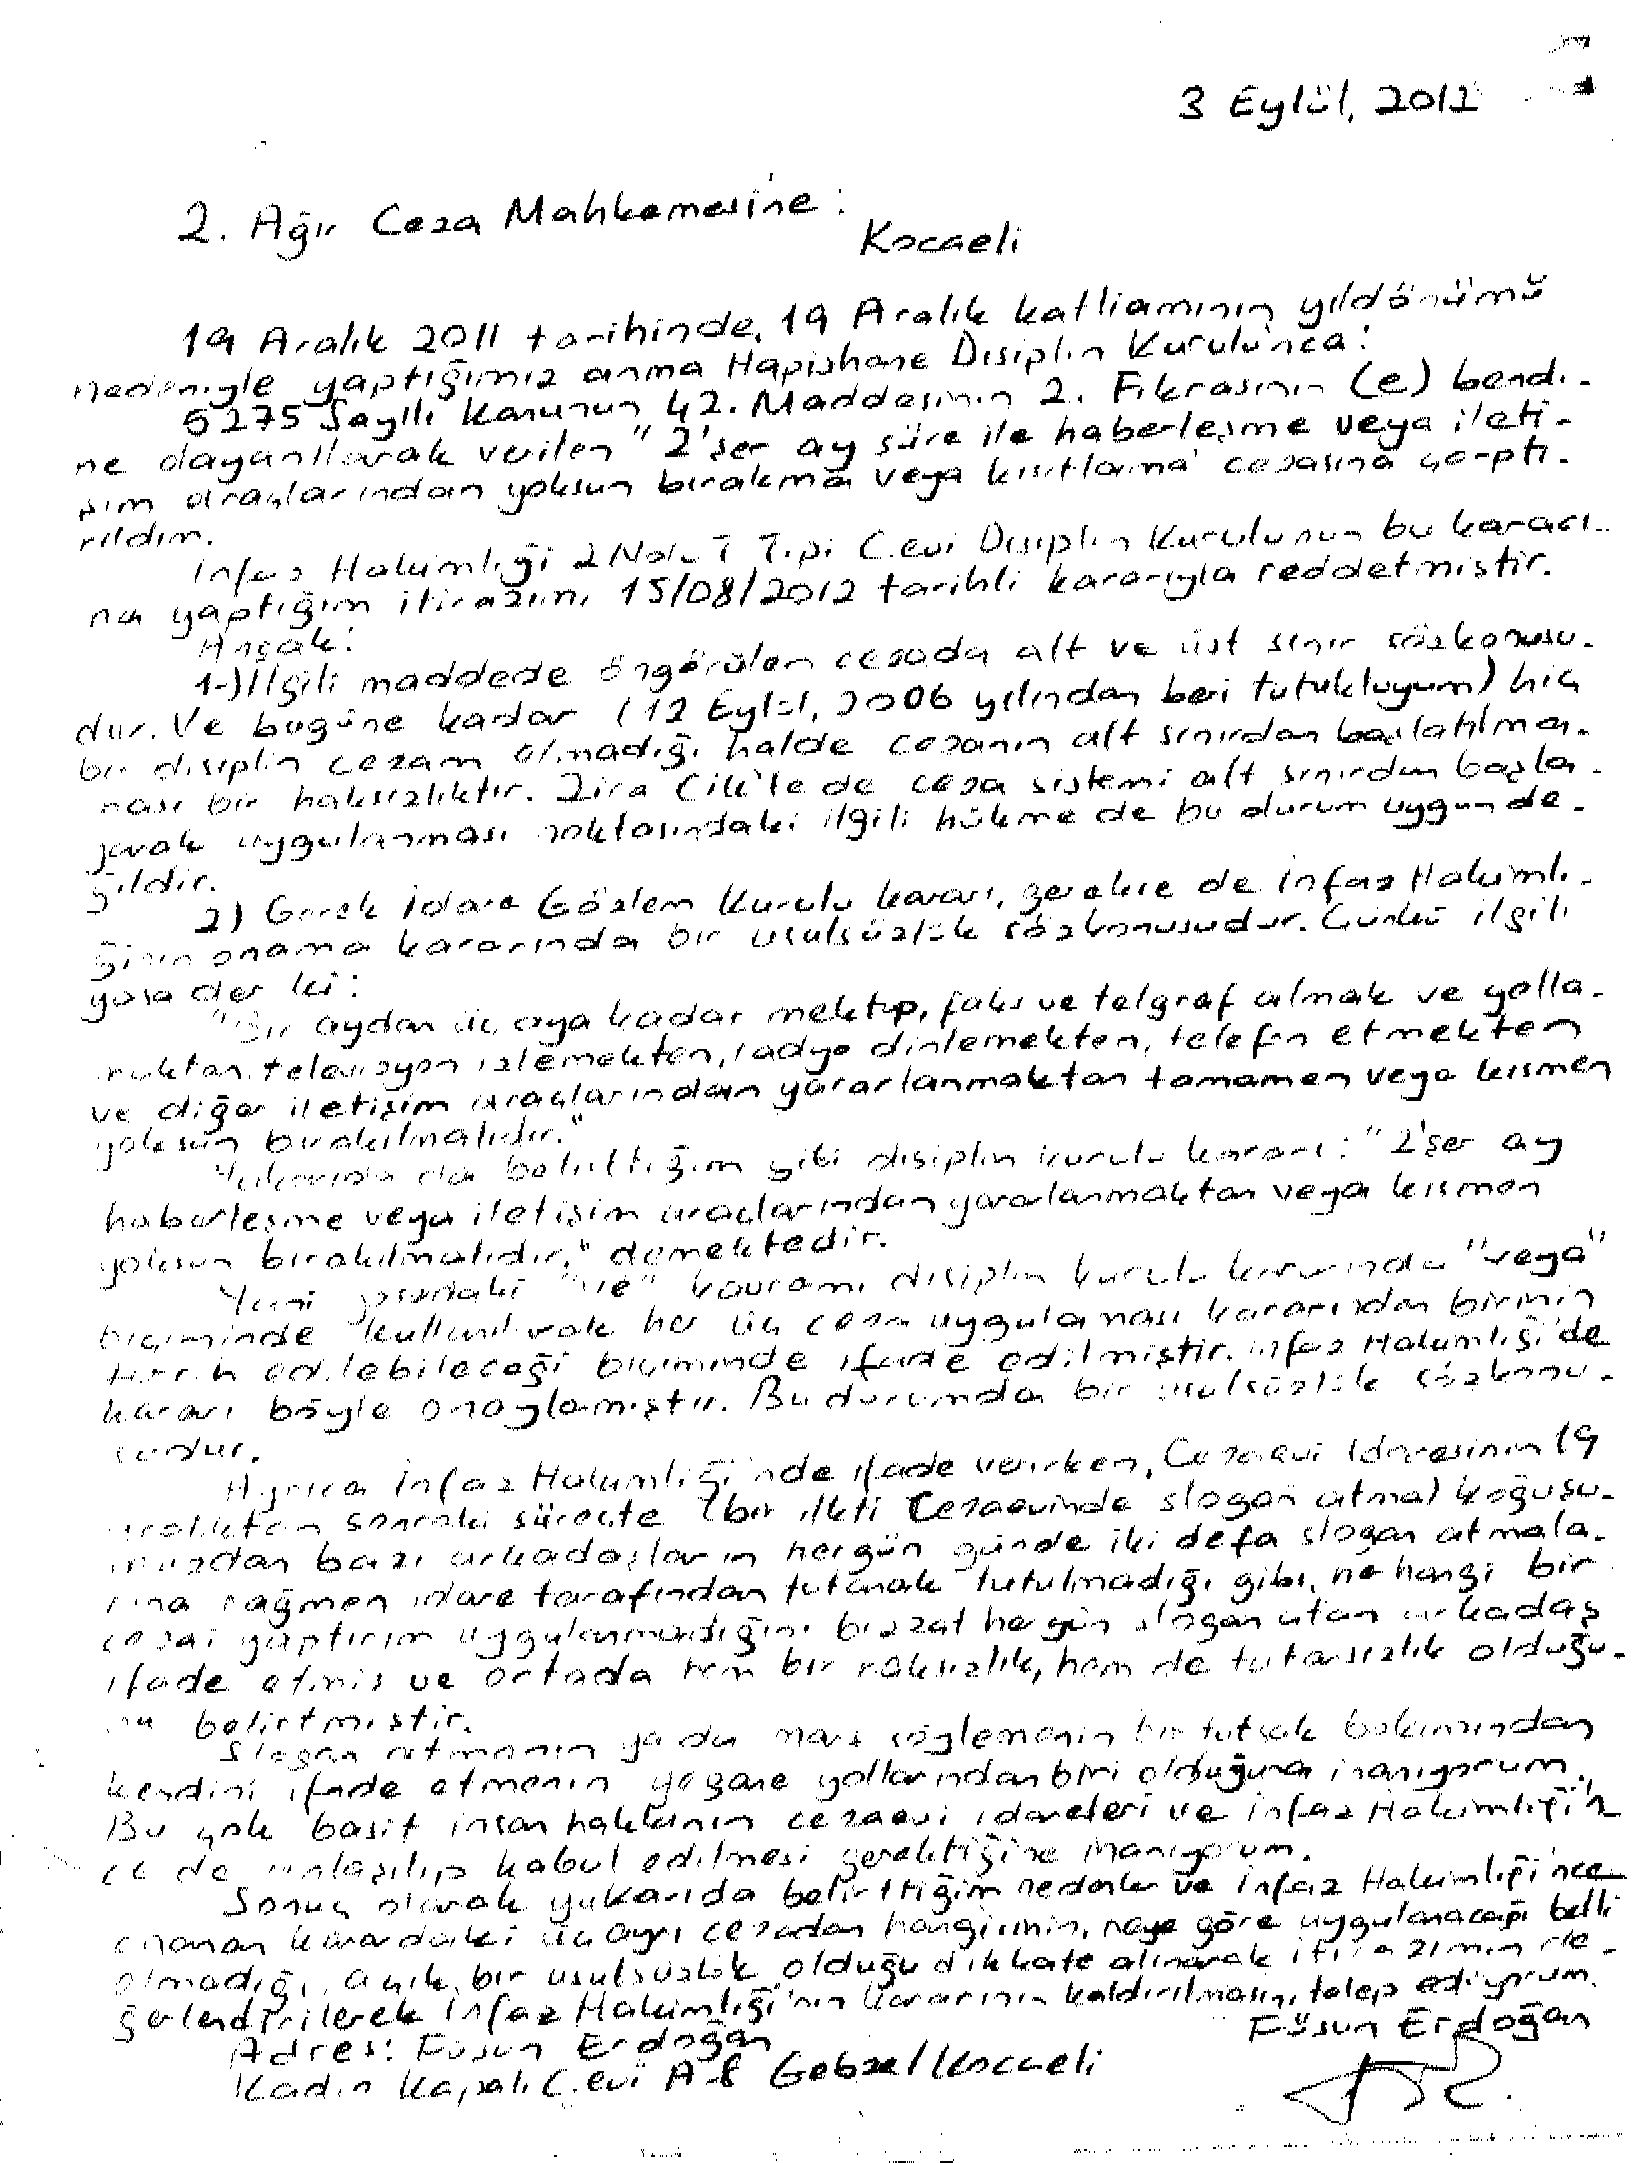 3 Eylül, 2012
2. Ağır Ceza Mahkemesine:
Kocaeli
19 Aralık 2011 tarihinde, 19 Aralık katliamının yıldönümü
nedeniyle yaptığımız anma Hapishane Disiplin Kurulu'nca:
5275 Sayılı Kanunun 42. Maddesinin 2. Fıkrasının (e) bendi-
ne dayanılarak verilen "2'şer ay süre ile haberleşme veya ileti-
şim araçlarından yoksun bırakma veya kısıtlama" cezasına çarptı-
rıldım.
İnfaz Hakimliği 2 Nolu T Tipi C.evi Disiplin Kurulunun bu kararı-
na yaptığım itirazımı 15/08/2012 tarihli kararıyla reddetmiştir.
Ancak:
1-) İlgili maddede öngörülen cezada alt ve üst sınır sözkonusu-
dur. Ve bugüne kadar (12 Eylül, 2006 yılından beri tutukluyum) hiç
bir disiplin cezam olmadığı halde cezanın alt sınırdan başlatılma-
ması bir haksızlıktır. Zira de ceza sistemi alt sınırdan başla-
yarak uygulanması noktasındaki ilgili hükme de bu durum uygun de-
ğildir.
2) Gerek İdare Gözlem Kurulu kararı, gerekse de İnfaz Hakimli-
ğinin onama kararında bir usulsüzlük sözkonusudur. Çünkü ilgili
yasa der ki:
"Bir aydan üç aya kadar mektup, faks ve telgraf almak ve yolla-
maktan, televizyon izlemekten, radyo dinlemekten, telefon etmekten
ve diğer iletişim araçlarından yararlanmaktan tamamen veya kısmen
yoksun bırakılmalıdır."
Yukarıda da belirttiğim gibi disiplin kurulu kararı: "2'şer ay
haberleşme veya iletişim araçlarından yararlanmaktan veya kısmen
yoksun bırakılmalıdır," demektedir.
Yani yasadaki "ve" kavramı disiplin kurulu kararında "veya"
biçiminde kullanılarak her üç ceza uygulaması kararından birinin
tercih edilebileceği biçiminde ifade edilmiştir. İnfaz Hakimliği'de
kararı böyle onaylamıştır. Bu durumda bir usulsüzlük sözkonu-
sudur.
Ayrıca İnfaz Hakimliği'nde ifade verirken, Cezaevi İdaresinin 19
Aralıktan sonraki süreçte (bir Cezaevinde slogan atma) koğuşu-
muzdan bazı arkadaşların hergün günde iki defa slogan atmala-
rına rağmen idare tarafından tutanak tutulmadığı gibi, ne hangi bir
cezai yaptırım uygulanmadığını bizzat hergün slogan atan arkadaş
ifade etmiş ve ortada hem bir haksızlık, hem de tutarsızlık olduğu-
nu belirtmiştir.
Slogan atmanın ya da marş söylemenin bir tutsak bakımından
kendini ifade etmenin yegane yollarından biri olduğuna inanıyorum.
Bu çok basit insan hakkının cezaevi idareleri ve İnfaz Hakimliği'n
ce de anlaşılıp kabul edilmesi gerektiğine inanıyorum.
Sonuç olarak yukarıda belirttiğim nedenler ve İnfaz Hakimliği'nce
onanan karardaki üç ayrı cezadan hangisinin, neye göre uygulanacağı belli
olmadığı, açık bir usulsüzlük olduğu dikkate alınarak itirazımın de-
ğerlendirilerek İnfaz Hakimliği'nin kararının kaldırılmasını talep ediyorum.
Füsun Erdoğan
Adres: Füsun Erdoğan
Kadın Kapalı C.evi A-8 Gebze/Kocaeli